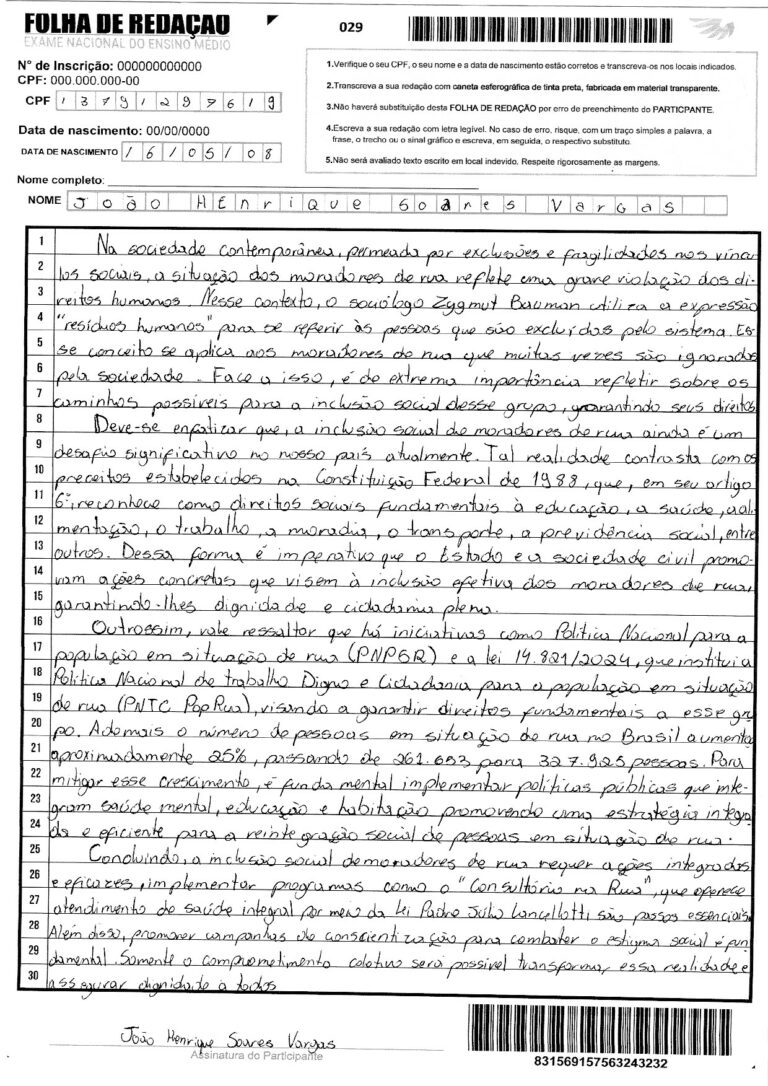 FOLHA DE REDAÇÃO
EXAME NACIONAL DO ENSINO MÉDIO
029
Nº de Inscrição: 000000000000
CPF: 000.000.000-00
CPF 13791297619
Data de nascimento: 00/00/0000
DATA DE NASCIMENTO 16/05/08
1.Verifique o seu CPF, o seu nome e a data de nascimento estão corretos e transcreva-os nos locais indicados.
2.Transcreva a sua redação com caneta esferográfica de tinta preta, fabricada em material transparente.
3.Não haverá substituição desta FOLHA DE REDAÇÃO por erro de preenchimento do PARTICPANTE.
4.Escreva a sua redação com letra legível. No caso de erro, risque, com um traço simples a palavra, a
frase, o trecho ou o sinal gráfico e escreva, em seguida, o respectivo substituto.
5.Não será avaliado texto escrito em local indevido. Respeite rigorosamente as margens.
Nome completo:
NOME João HEnrique Soares Vargas
1 Na sociedade contemporânea, permeada por exclusões e fragilidades nos víncu
2 los sociais, a situação dos moradores de rua reflete uma grave violação dos di-
3 reitos humanos. Nesse contexto, o sociólogo Zygmut Bauman utiliza a expressão
4 "resíduos humanos" para se referir às pessoas que são excluídas pelo sistema. Es-
5 se conceito se aplica aos moradores de rua que muitas vezes são ignorados
6 pela sociedade. Face a isso, é de extrema importância refletir sobre os
7 caminhos possíveis para a inclusão social desse grupo, garantindo seus direitos
8 Deve-se enfatizar que, a inclusão social de moradores de rua ainda é um
9 desafio significativo no nosso país atualmente. Tal realidade contrasta com os
10 preceitos estabelecidos na Constituição Federal de 1988, que, em seu artigo
11 6º, reconhece como direitos sociais fundamentais à educação, a saúde, a ali
12 mentação, o trabalho, a moradia, o transporte, a previdência social, entre
13 outros. Dessa forma é imperativo que o Estado e a sociedade civil promo-
14 vam ações concretas que visem à inclusão efetiva dos moradores de rua,
15 garantindo-lhes dignidade e cidadania plena.
16 Outrossim, vale ressaltar que há iniciativas como Política Nacional para a
17 população em situação de rua (PNPSR) e a lei 14.821/2024, que institui a
18 Política Nacional de trabalho Digno e Cidadania para a população em situação
19 de rua (PNTC PopRua), visando a garantir direitos fundamentais a esse gru
20 po. Ademais o número de pessoas em situação de rua no Brasil aumentou
21 aproximadamente 25%, passando de 261.653 para 327.925 pessoas. Para
22 mitigar esse crescimento, é fundamental implementar políticas públicas que inte-
23 gram saúde mental, educação e habitação promovendo uma estratégia integra
24 da e eficiente para a reintegração social de pessoas em situação de rua.
25 Concluindo, a inclusão social de moradores de rua requer ações integradas
26 e eficazes, implementar programas como o "Consultório na Rua", que oferece
27 atendimento de saúde integral por meio da Lei Padre Júlio Lancellotti são passos essenciais.
28 Além disso, promover campanhas de conscientização para combater o estigma social é fun
29 damental. Somente o comprometimento coletivo será possível transformar essa realidade e
30 assegurar dignidade à todos
João Henrique Soares Vargas
Assinatura do Participante
831569157563243232